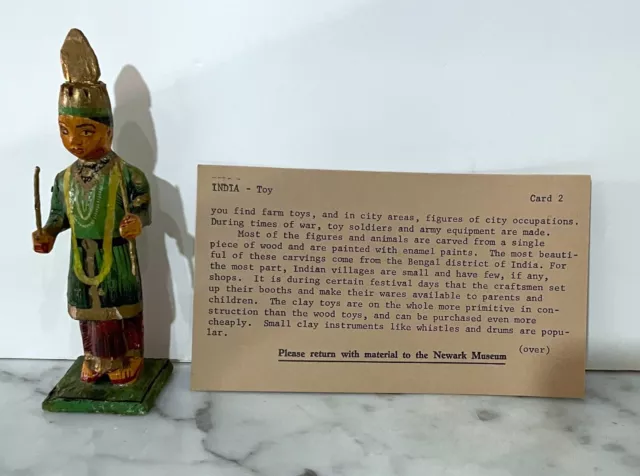 INDIA - Toy
Card 2
you find farm toys, and in city areas, figures of city occupations.
During times of war, toy soldiers and army equipment are made.
Most of the figures and animals are carved from a single
piece of wood and are painted with enamel paints. The most beauti-
ful of these carvings come from the Bengal district of India. For
the most part, Indian villages are small and have few, if any,
shops. It is during certain festival days that the craftsmen set
up their booths and make their wares available to parents and
children. The clay toys are on the whole more primitive in con-
struction than the wood toys, and can be purchased even more
cheaply. Small clay instruments like whistles and drums are popu-
lar.
(over)
Please return with material to the Newark Museum